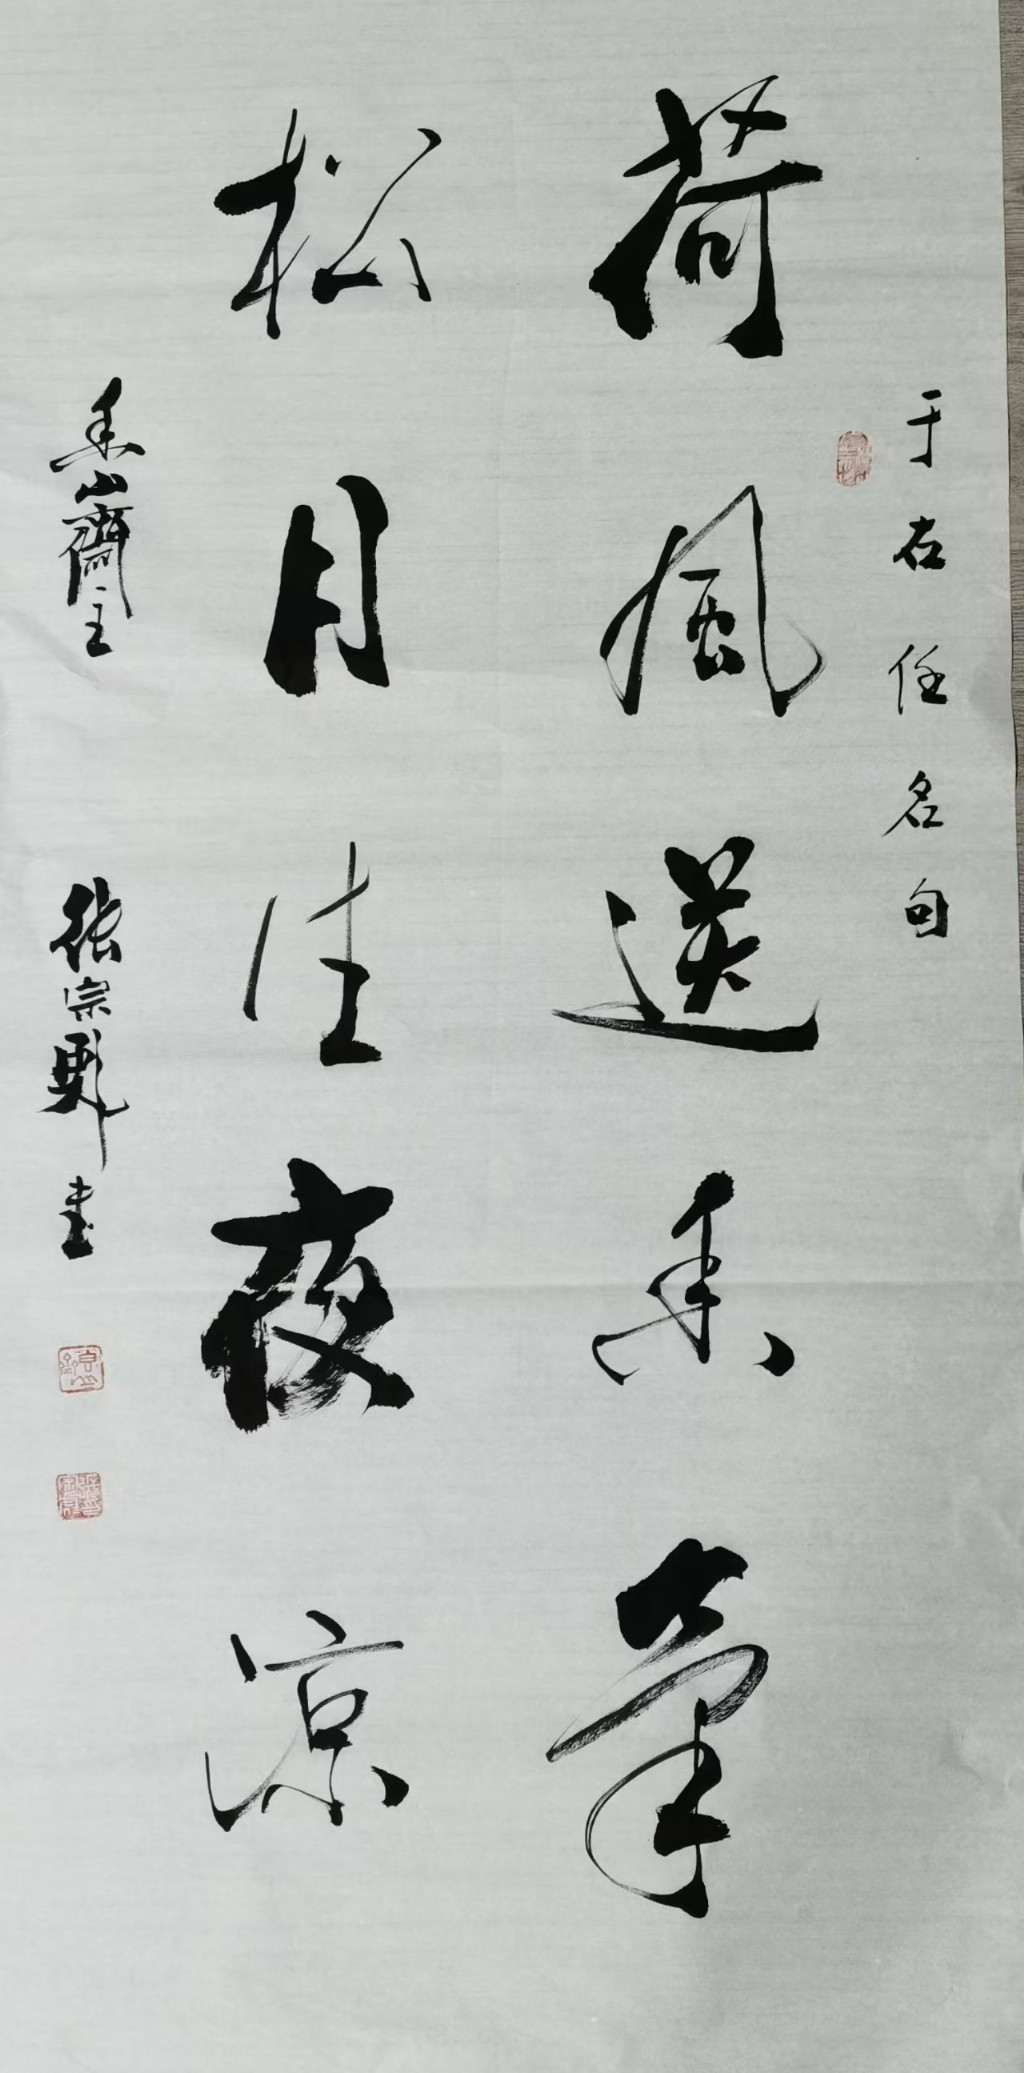 于右任名句
荷風送香氣
松月生夜凉
香山齋主
張宗 書